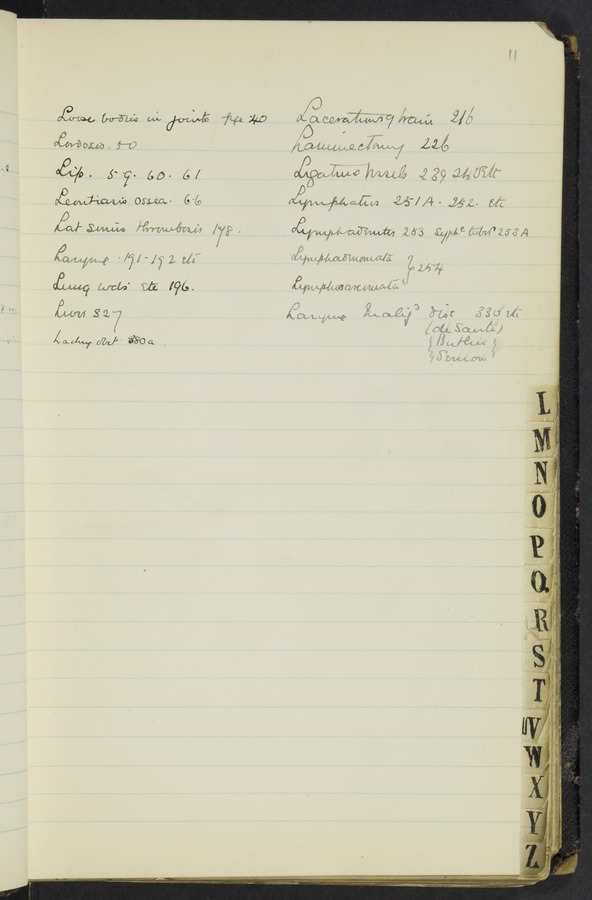 11
Loose bodies in joints page 40
Lordosis. 50
Lip. 59. 60. 61
Leontiasis ossea. 66
Lat sinus thrombosis 178.
Larynx. 191-192 etc
Lung wds etc 196.
Liver 327
Lachry duct 380a
Lacerations of brain 216
Laminectomy 226
Ligature vessels 239 240 etc
Lymphatics 251/A. 252. etc
Lymphadenitis 253 Syphc tuberc 253A
Lymphadenomata } 254
Lymphosarcomata
Larynx Malig disc 330 etc
(de Santi)
{Butlin}
{Semon
L
M
N
O
P
Q
R
S
T
UV
W
X
Y
Z